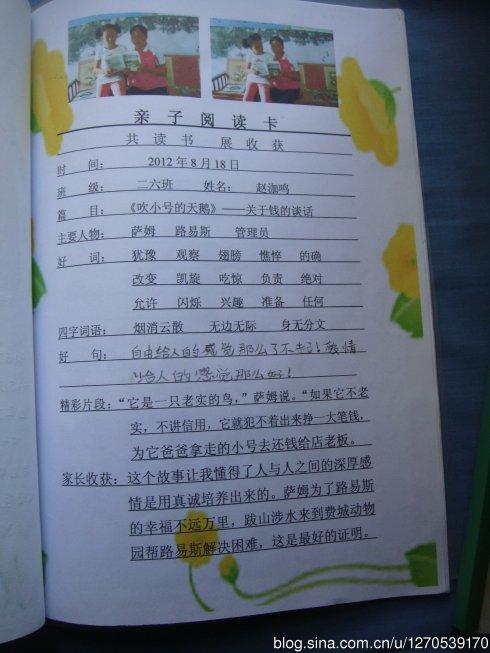 亲子阅读卡
共读书 展收获
时 间： 2012年8月18日
班 级： 二六班 姓名： 赵洳鸣
篇 目： 《吹小号的天鹅》——关于钱的谈话
主要人物： 萨姆 路易斯 管理员
好 词： 犹豫 观察 翅膀 憔悴 的确
改变 凯旋 吃惊 负责 绝对
允许 闪烁 兴趣 准备 任何
四字词语： 烟消云散 无边无际 身无分文
好 句： 自由给人的感觉那么了不起！爱情
给人的感觉那么好！
精彩片段：“它是一只老实的鸟，”萨姆说。“如果它不老
实，不讲信用，它就犯不着出来挣一大笔钱，
为它爸爸拿走的小号去还钱给店老板。
家长收获：这个故事让我懂得了人与人之间的深厚感
情是用真诚培养出来的。萨姆为了路易斯
的幸福不远万里，跋山涉水来到费城动物
园帮路易斯解决困难，这是最好的证明。
blog.sina.com.cn/u/1270539170